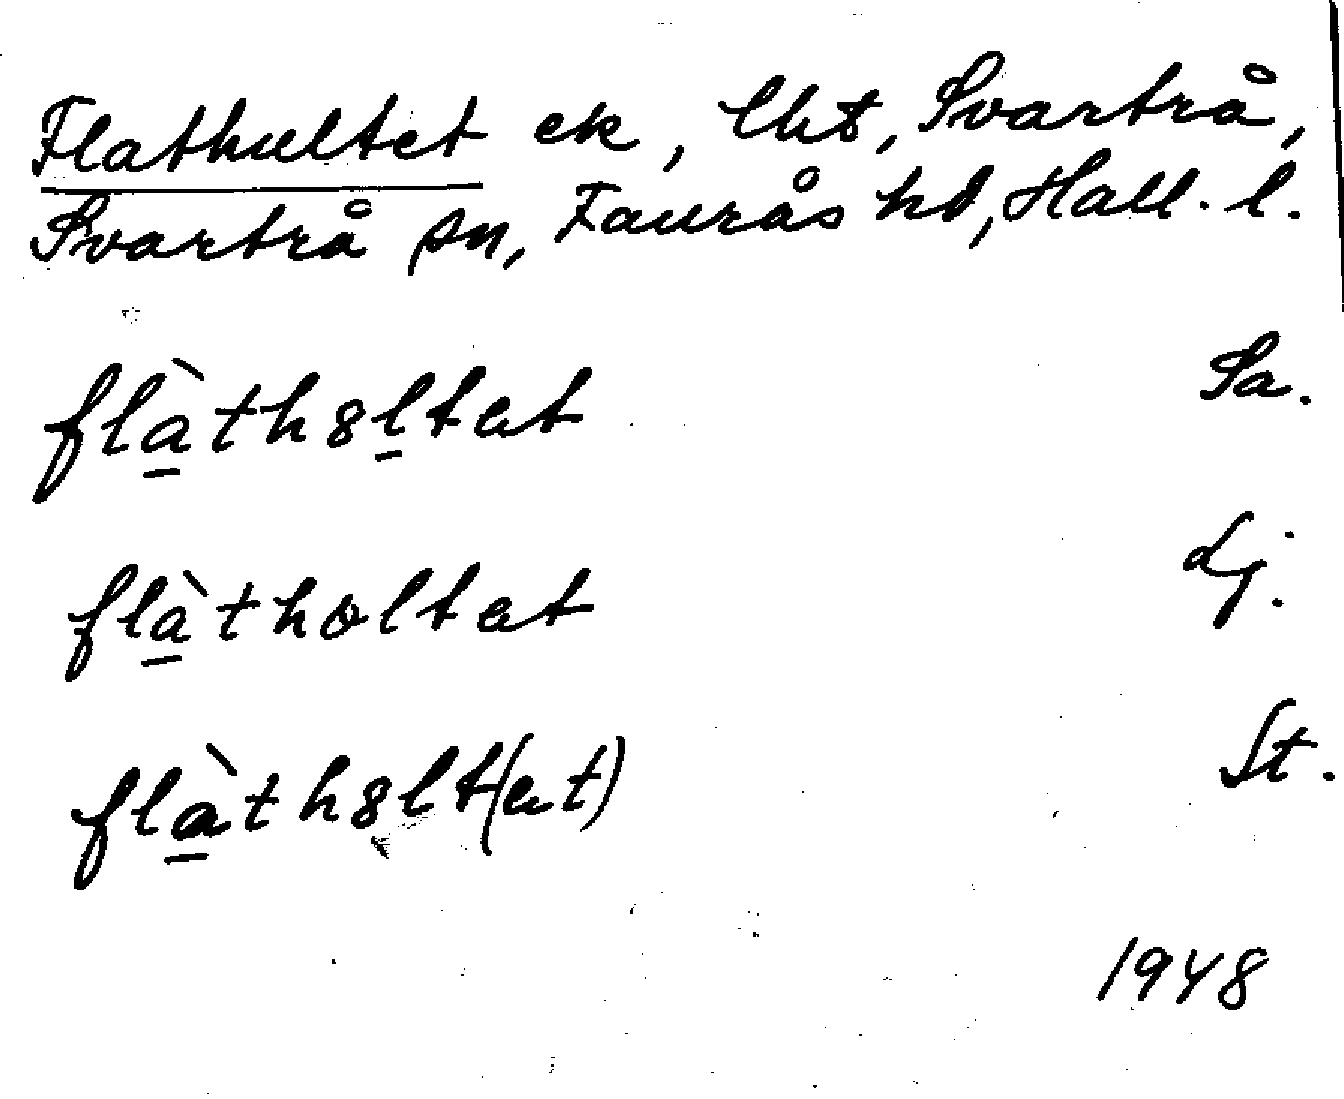 Flathultet ek, lht, Svartrå,
Svartrå sn, Faurås hd, Hall. l.
flàth8ltat Sa.
flàtholtat Lj.
flàth8lt(at) St.
1948